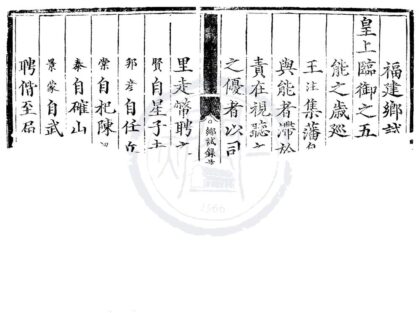 福建鄉試
皇上臨御之五
能之歲巡
王注集藩臬
與能者滯於
責在視聽之
之優者以司
鄉試錄
里走幣聘之
賢自星子
邦彥自任丘
棠自杞陳
泰自確山
景蒙自武
聘偕至屆
1566